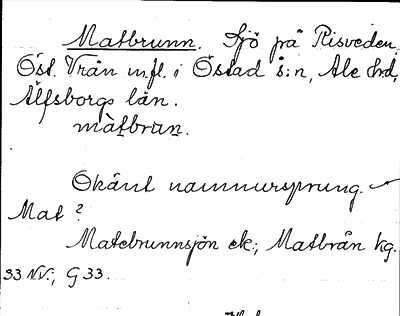 Matbrunn. Sjö på Risveden,
Öst. Vrån m.fl. i Östad s:n, Ale hd,
Älfsborgs län.
màtbrun.
Okänt namnursprung.
Mat?
Matebrunnsjön ek.; Matbrån kg.
33 NV.; G 33.